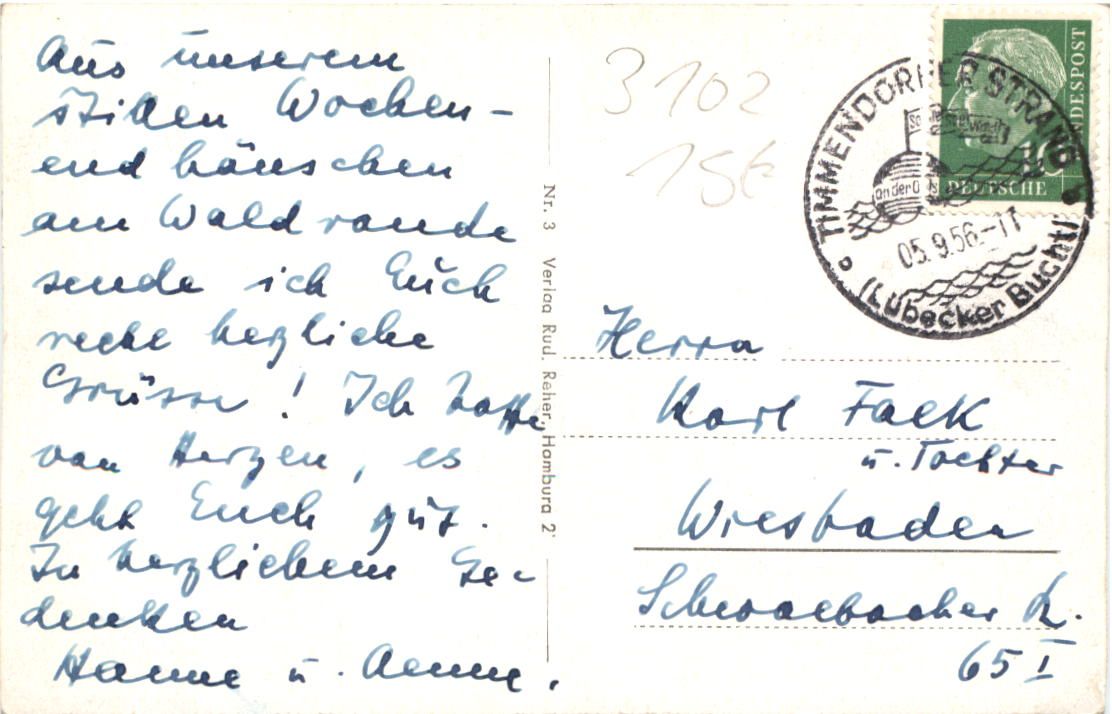 Aus unserem
stillen Wochen-
endhäuschen
am Waldrande
sende ich Euch
recht herzliche
Grüsse! Ich hoffe
von Herzen, es
geht Euch gut.
In herzlichem Ge-
denken
Hanne u. Aenne.
Nr. 3 Verlag Rud. Reher, Hamburg 2
3102
15€
TIMMENDORFER STRAND
an der
05.9.56.-17
(Lübecker Bucht)
BUNDESPOST
10
DEUTSCHE
Herrn
Karl Falk
u. Tochter
Wiesbaden
Schwalbacher Str.
65 I